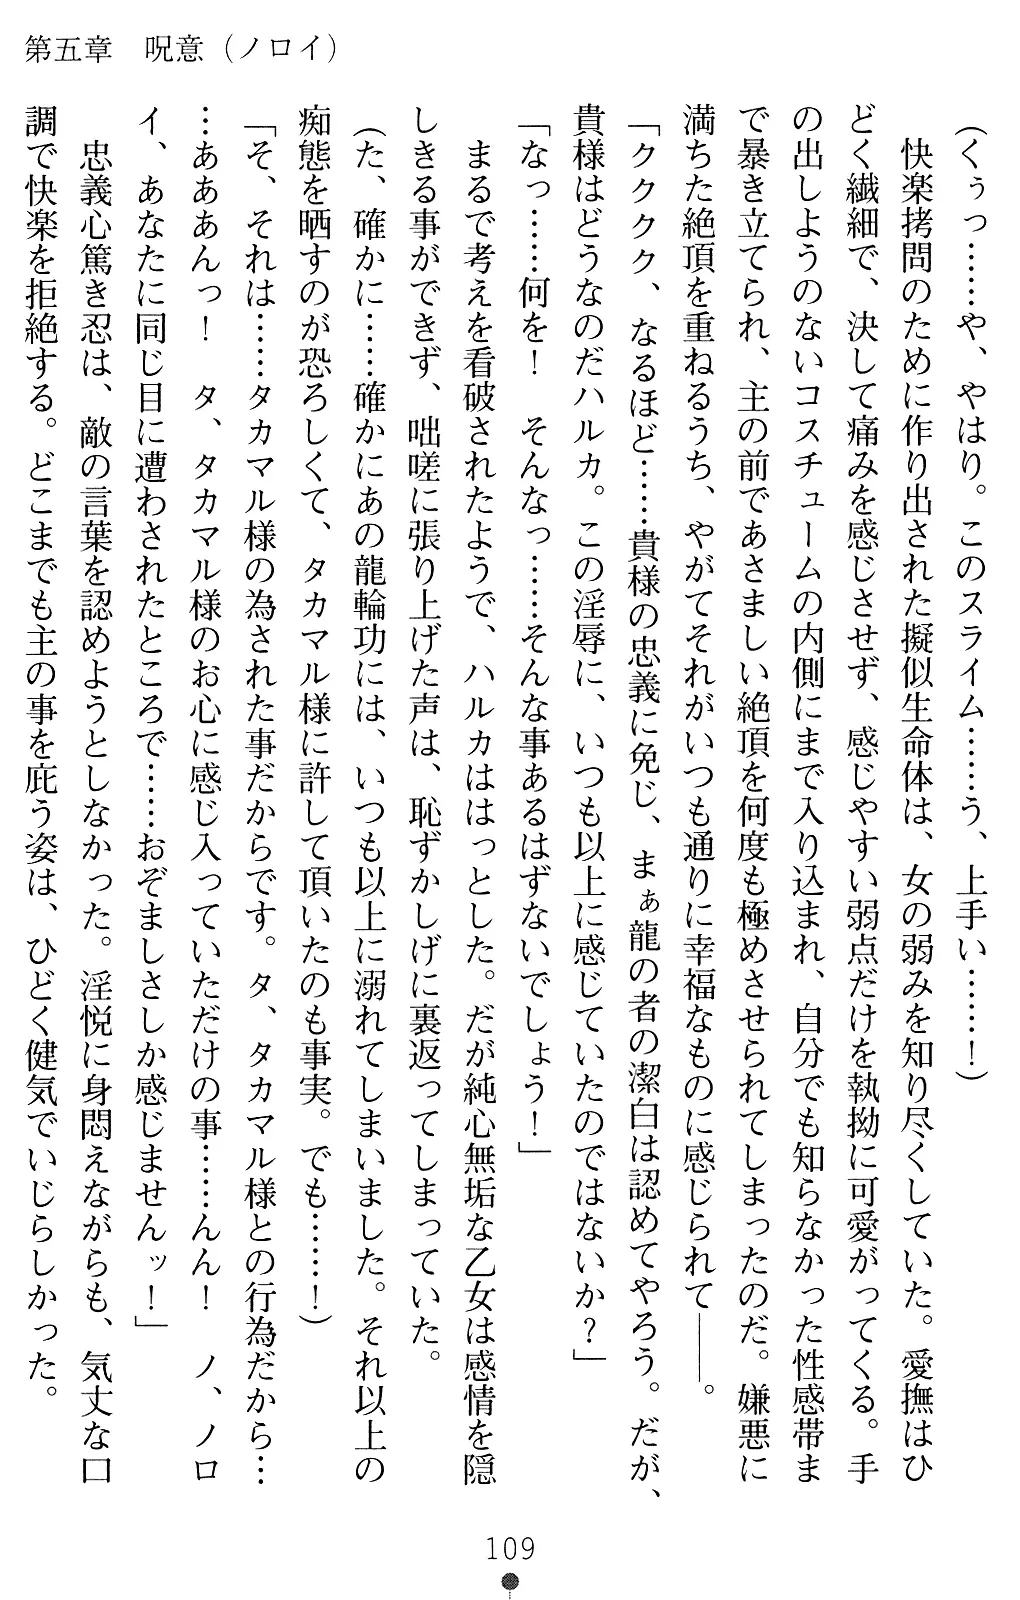 第五章　呪意（ノロイ）
（くぅっ……や、やはり。このスライム……う、上手い……！）
　快楽拷問のために作り出された擬似生命体は、女の弱みを知り尽くしていた。愛撫はひ
どく繊細で、決して痛みを感じさせず、感じやすい弱点だけを執拗に可愛がってくる。手
の出しようのないコスチュームの内側にまで入り込まれ、自分でも知らなかった性感帯ま
で暴き立てられ、主の前であさましい絶頂を何度も極めさせられてしまったのだ。嫌悪に
満ちた絶頂を重ねるうち、やがてそれがいつも通りに幸福なものに感じられて――。
「クククク、なるほど……貴様の忠義に免じ、まぁ龍の者の潔白は認めてやろう。だが、
貴様はどうなのだハルカ。この淫辱に、いつも以上に感じていたのではないか？」
「なっ……何を！　そんなっ……そんな事あるはずないでしょう！」
　まるで考えを看破されたようで、ハルカははっとした。だが純心無垢な乙女は感情を隠
しきる事ができず、咄嗟に張り上げた声は、恥ずかしげに裏返ってしまっていた。
（た、確かに……確かにあの龍輪功には、いつも以上に溺れてしまいました。それ以上の
痴態を晒すのが恐ろしくて、タカマル様に許して頂いたのも事実。でも……！）
「そ、それは……タカマル様の為された事だからです。タ、タカマル様との行為だから…
…あああんっ！　タ、タカマル様のお心に感じ入っていただけの事……んん！　ノ、ノロ
イ、あなたに同じ目に遭わされたところで……おぞましさしか感じませんッ！」
　忠義心篤き忍は、敵の言葉を認めようとしなかった。淫悦に身悶えながらも、気丈な口
調で快楽を拒絶する。どこまでも主の事を庇う姿は、ひどく健気でいじらしかった。
109